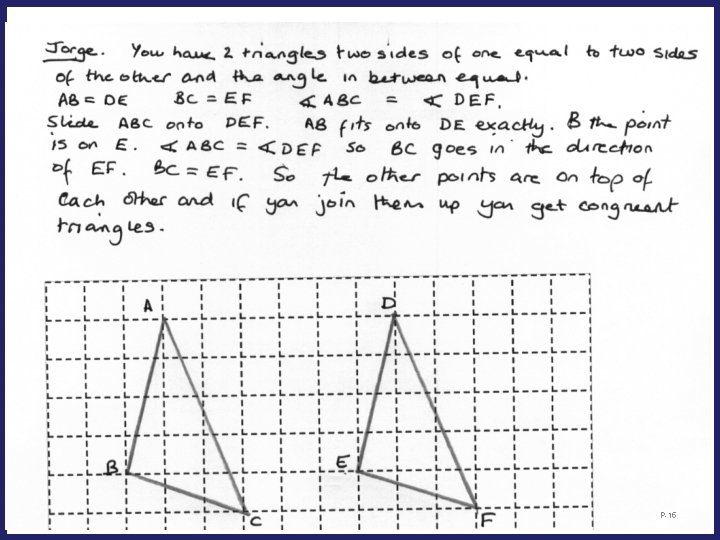 Jorge. You have 2 triangles two sides of one equal to two sides
of the other and the angle in between equal.
AB = DE BC = EF ∢ ABC = ∢ DEF.
Slide ABC onto DEF. AB fits onto DE exactly. B the point
is on E. ∢ ABC = ∢ DEF so BC goes in the direction
of EF. BC = EF. So the other points are on top of
each other and if you join them up you get congruent
triangles.
A D
B E
C F
P-16